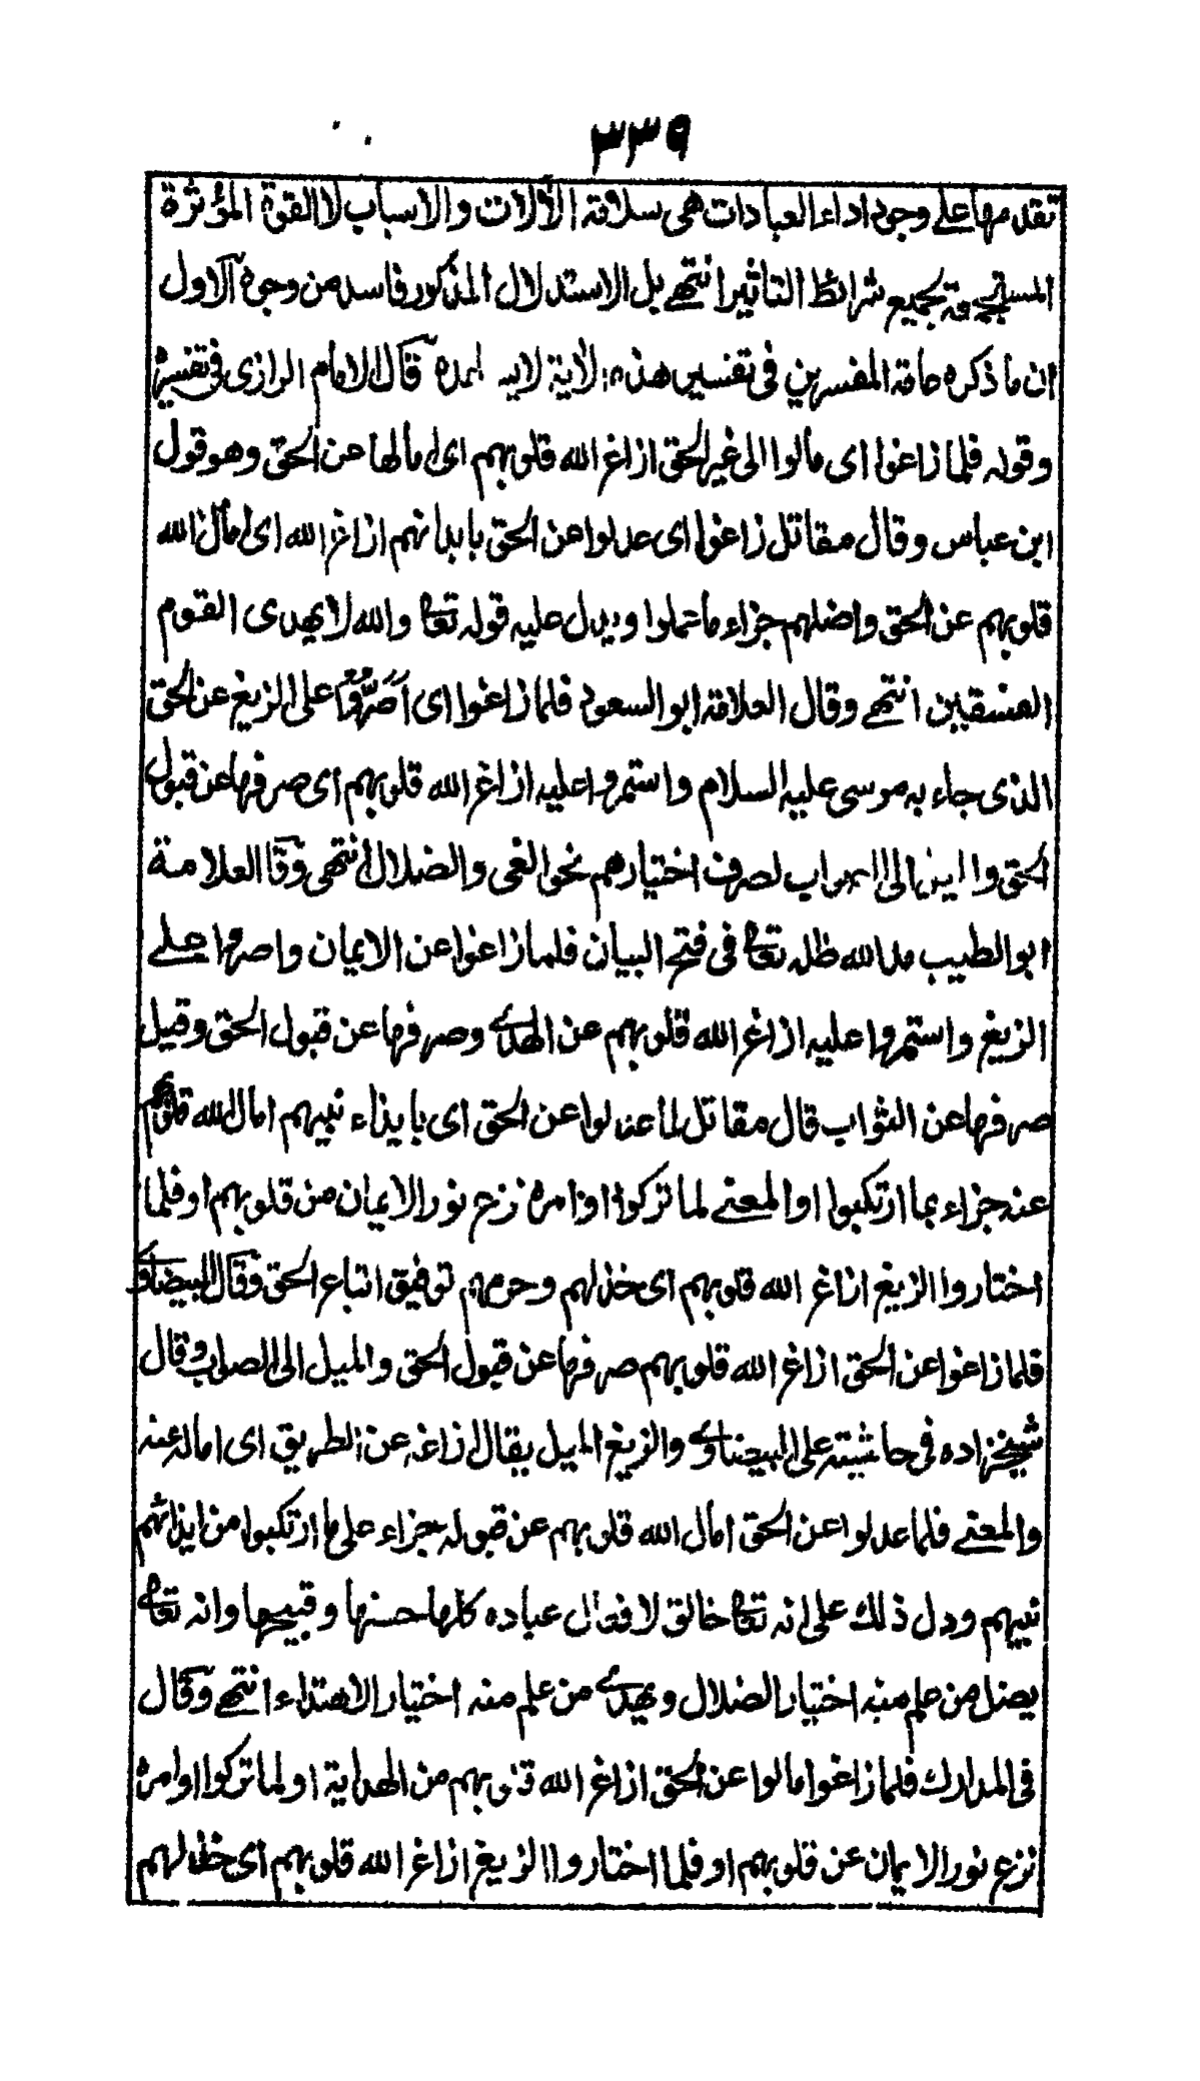 ٣٣٩
تقدمها على وجوب اداء العبادات هى سلامة الآلات والاسباب لا القوة المؤثرة
المستجمعة بجميع شرائط التاثير انتهى بل الاستدلال المذكور فاسد من وجوه الاول
ان ما ذكره عامة المفسرين فى تفسير هذه الاية لا قال الامام الرازى فى تفسيره
وقوله فلما زاغوا اى مالوا الى غير الحق ازاغ الله قلوبهم اى امالها عن الحق وهو قول
ابن عباس وقال مقاتل زاغوا اى عدلوا عن الحق بابدانهم ازاغ الله اى امال الله
قلوبهم عن الحق واضلهم جزاء ما عملوا ويدل عليه قوله تعالى والله لا يهدى القوم
الفسقين انتهى وقال العلامة ابو السعود فلما زاغوا اى اصرّوا على الزيغ عن الحق
الذى جاء به موسى عليه السلام واستمروا عليه ازاغ الله قلوبهم اى صرفها عن قبول
الحق والميل الى الصواب لصرف اختيارهم نحو الغى والضلال انتهى وقال العلامة
ابو الطيب مد الله ظله تعالى فى فتح البيان فلما زاغوا عن الايمان واصروا على
الزيغ واستمروا عليه ازاغ الله قلوبهم عن الهدى وصرفها عن قبول الحق وقيل
صرفها عن الثواب قال مقاتل لما عدلوا عن الحق اى بايذاء نبيهم امال الله قلوبهم
عنه جزاء بما ارتكبوا او المعنى لما تركوا اوامره نزع نور الايمان من قلوبهم او فلما
اختاروا الزيغ ازاغ الله قلوبهم اى خذلهم وحرمهم توفيق اتباع الحق وقال البيضاوى
فلما زاغوا عن الحق ازاغ الله قلوبهم صرفها عن قبول الحق والميل الى الصواب وقال
شيخزاده فى حاشيته على البيضاوى والزيغ الميل يقال ازاغه عن الطريق اى اماله عنه
والمعنى فلما عدلوا عن الحق امال الله قلوبهم عن قبوله جزاء على ما ارتكبوا من ايذائهم
نبيهم ودل ذلك على انه تعالى خالق لافعال عباده كلها حسنها وقبيحها وانه تعالى
يضل من علم منه اختيار الضلال ويهدى من علم منه اختيار الاهتداء انتهى وقال
فى المدارك فلما زاغوا مالوا عن الحق ازاغ الله قلوبهم من الهداية او لما تركوا اوامره
نزع نور الايمان عن قلوبهم او فلما اختاروا الزيغ ازاغ الله قلوبهم اى خذلهم